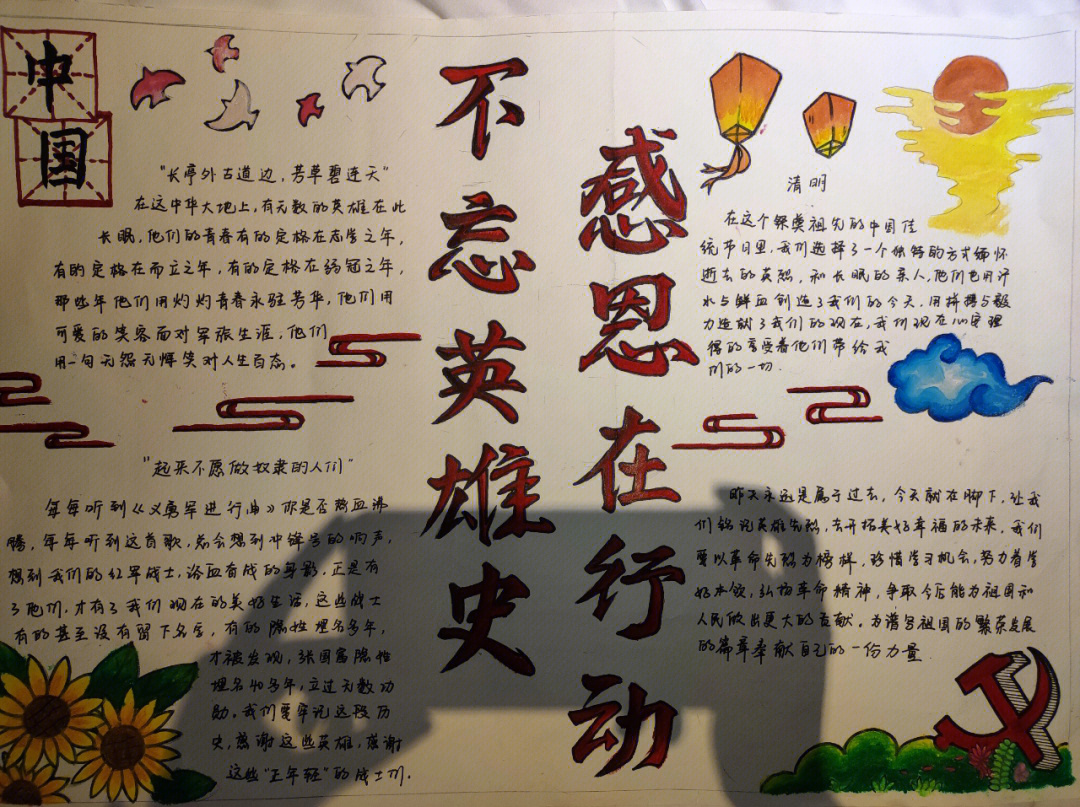 中
国
不忘英雄史
感恩在行动
"长亭外古道边，芳草碧连天"
在这中华大地上，有无数的英雄在此
长眠，他们的青春有的定格在志学之年，
有的定格在而立之年，有的定格在弱冠之年，
那些年他们用灼灼青春永驻芳华，他们用
可爱的笑容面对军张生涯，他们
用一句无怨无悔笑对人生百态。
"起来不愿做奴隶的人们"
每每听到《义勇军进行曲》你是否热血沸
腾，每每听到这首歌，总会想到冲锋号的响声，
想到我们的红军战士，浴血奋战的身影。正是有
了他们，才有了我们现在的美好生活，这些战士
有的甚至没有留下名字，有的隐姓埋名多年，
才被发现，张国富隐姓
埋名40多年，立过无数功
勋。我们要牢记这段历
史，感谢这些英雄，感谢
这些"正年轻"的战士们.
清明
在这个祭奠祖先的中国传
统节日里，我们选择了一个独特的方式缅怀
逝去的英烈，和长眠的亲人，他们也用汗
水与鲜血创造了我们的今天，用拼搏与毅
力造就了我们的现在，我们现在心安理
得的享受着他们带给我
们的一切.
昨天永远是属于过去，今天就在脚下，让我
们铭记英雄先烈，去开拓美好幸福的未来。我们
要以革命先烈为榜样，珍惜学习机会，努力着学
好本领，弘扬革命精神，争取今后能为祖国和
人民做出更大的贡献。为谱写祖国的繁荣发展
的篇章奉献自己的一份力量.